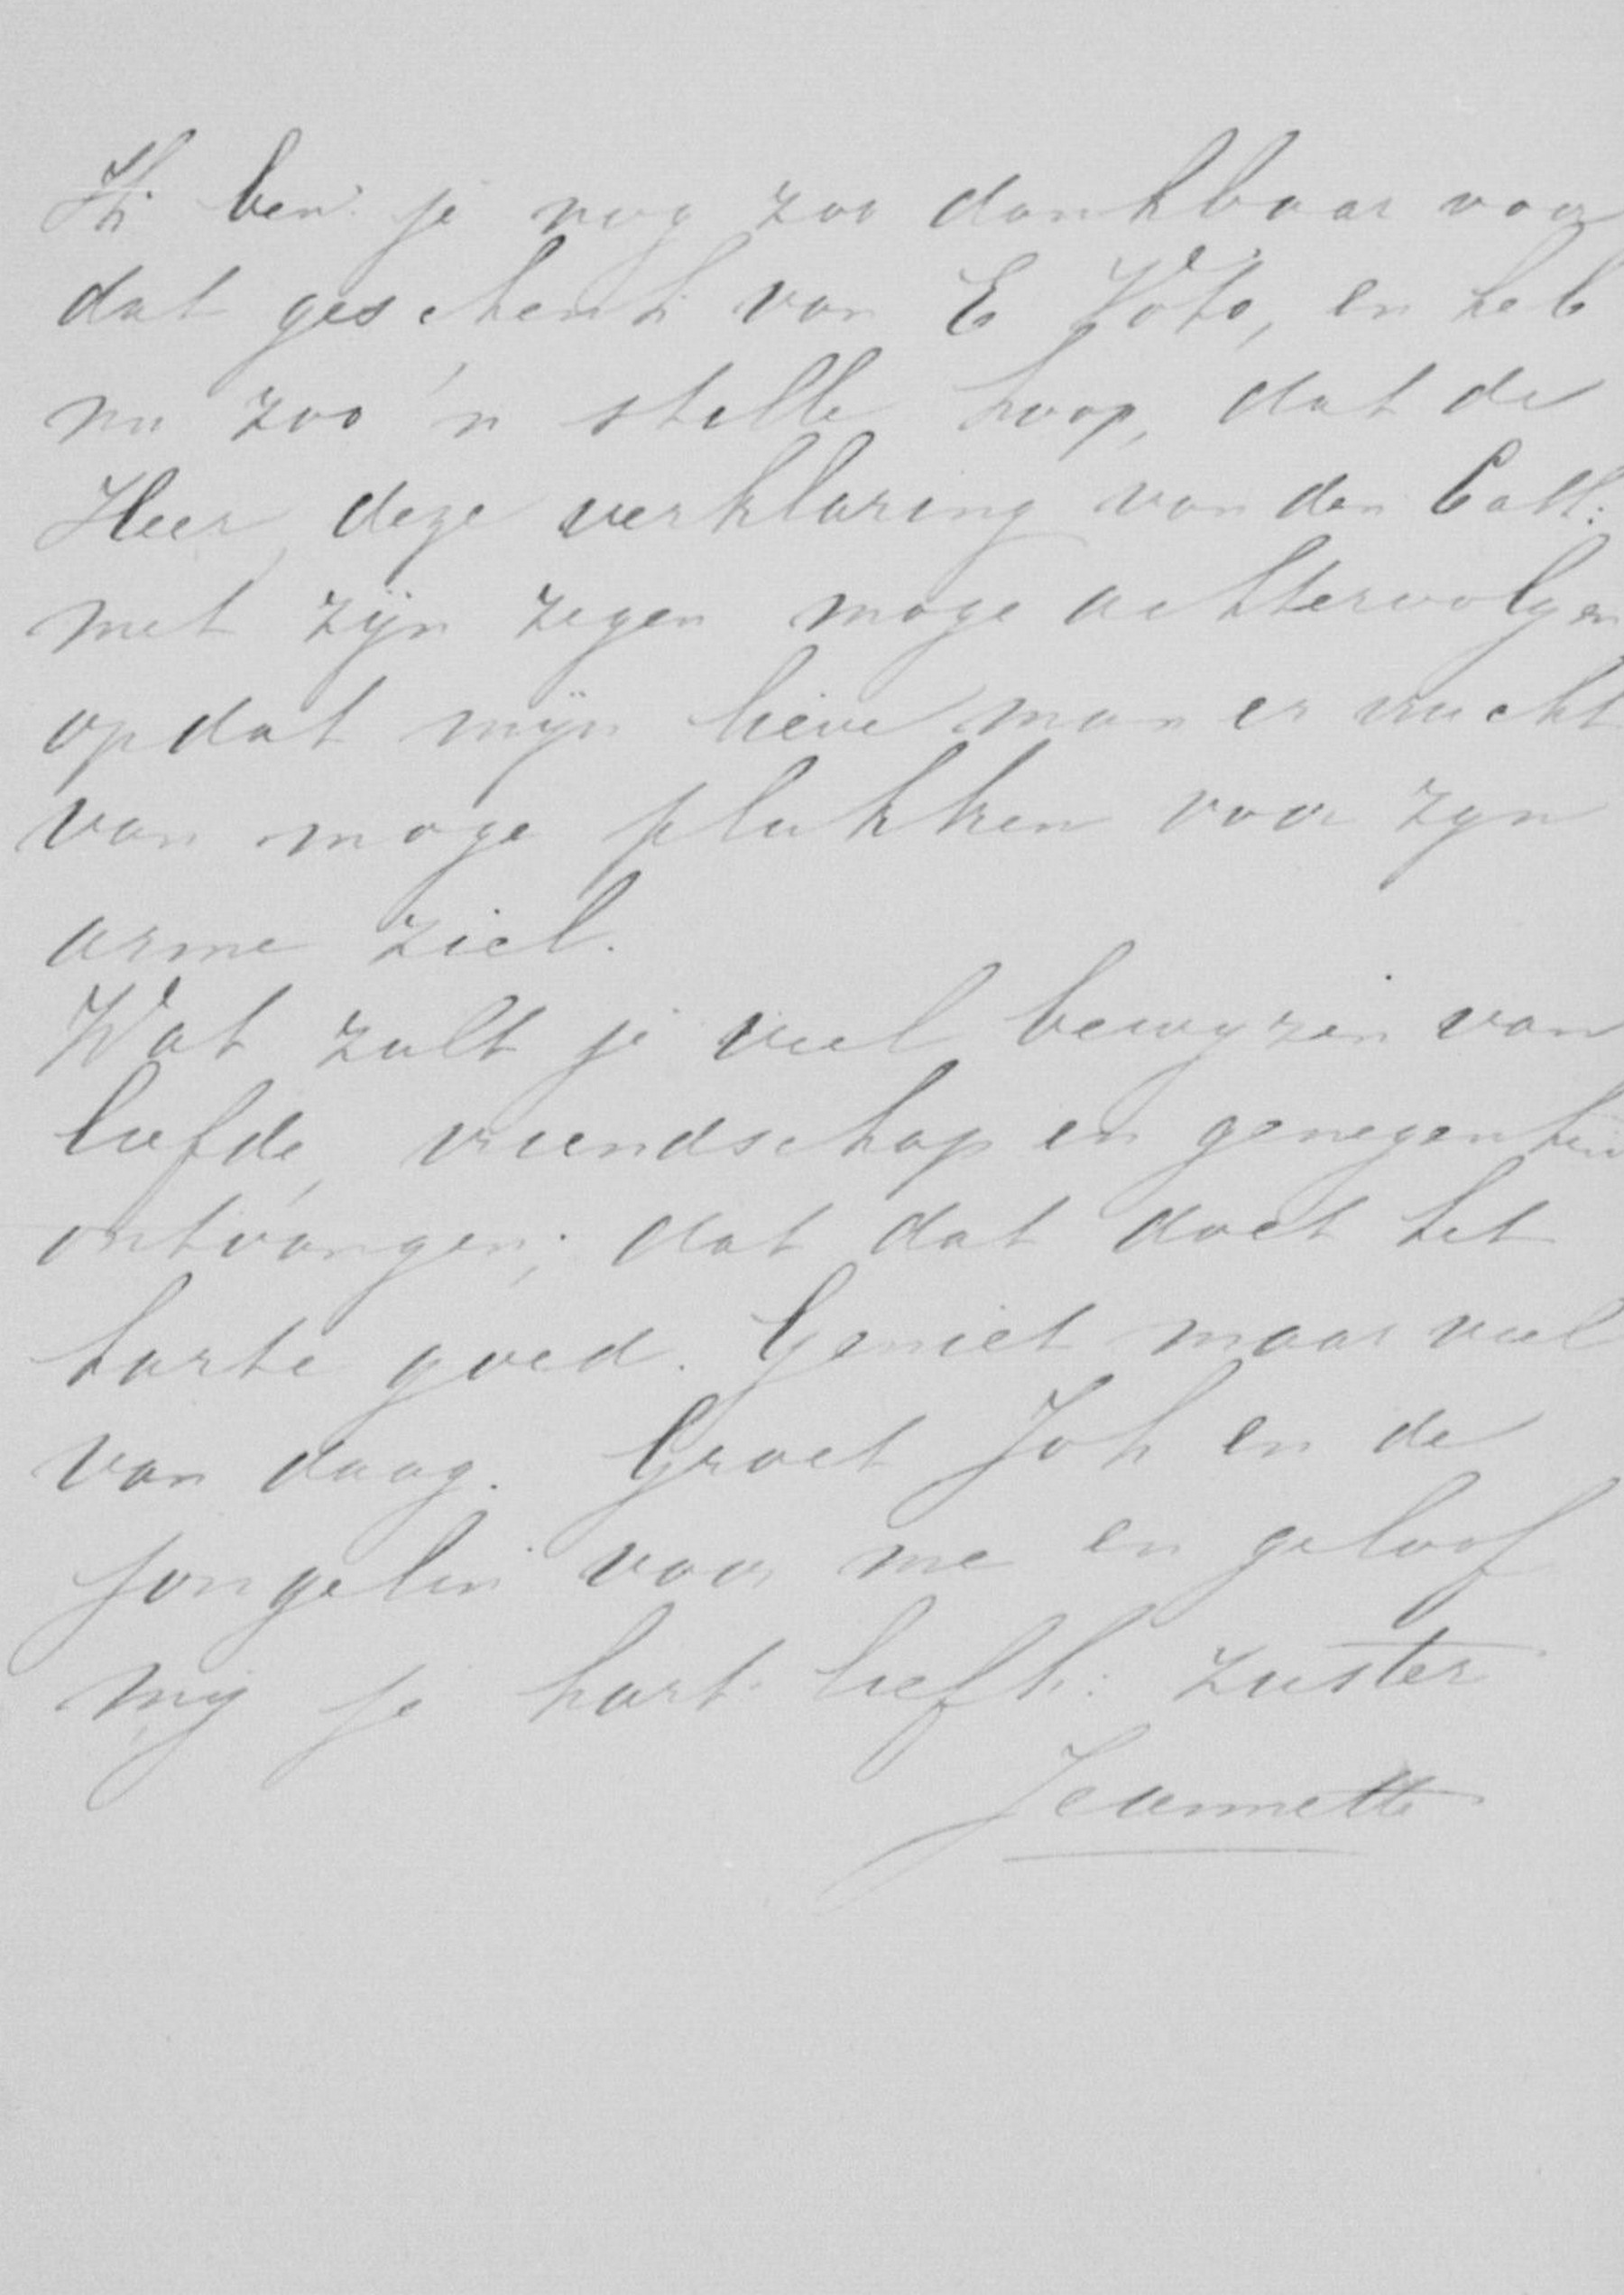 Ik ben je nog zoo dankbaar voor
dat geschenk van E Voto, en heb
nu zoo 'n stille hoop, dat de
Heer deze verklaring van den Cath:
met zijn zegen moge achtervolgen
opdat mijn lieve man er vrucht
van moge plukken voor zyn
arme ziel.
Wat zult je veel bewyzen van
liefde, vriendschap en genegenheid
ontvangen; dat dat doet het
harte goed. Geniet maar veel
van daag. Groet Joh en de
jongelin voor me en geloof
my je hart. liefh: zuster
Jeannette